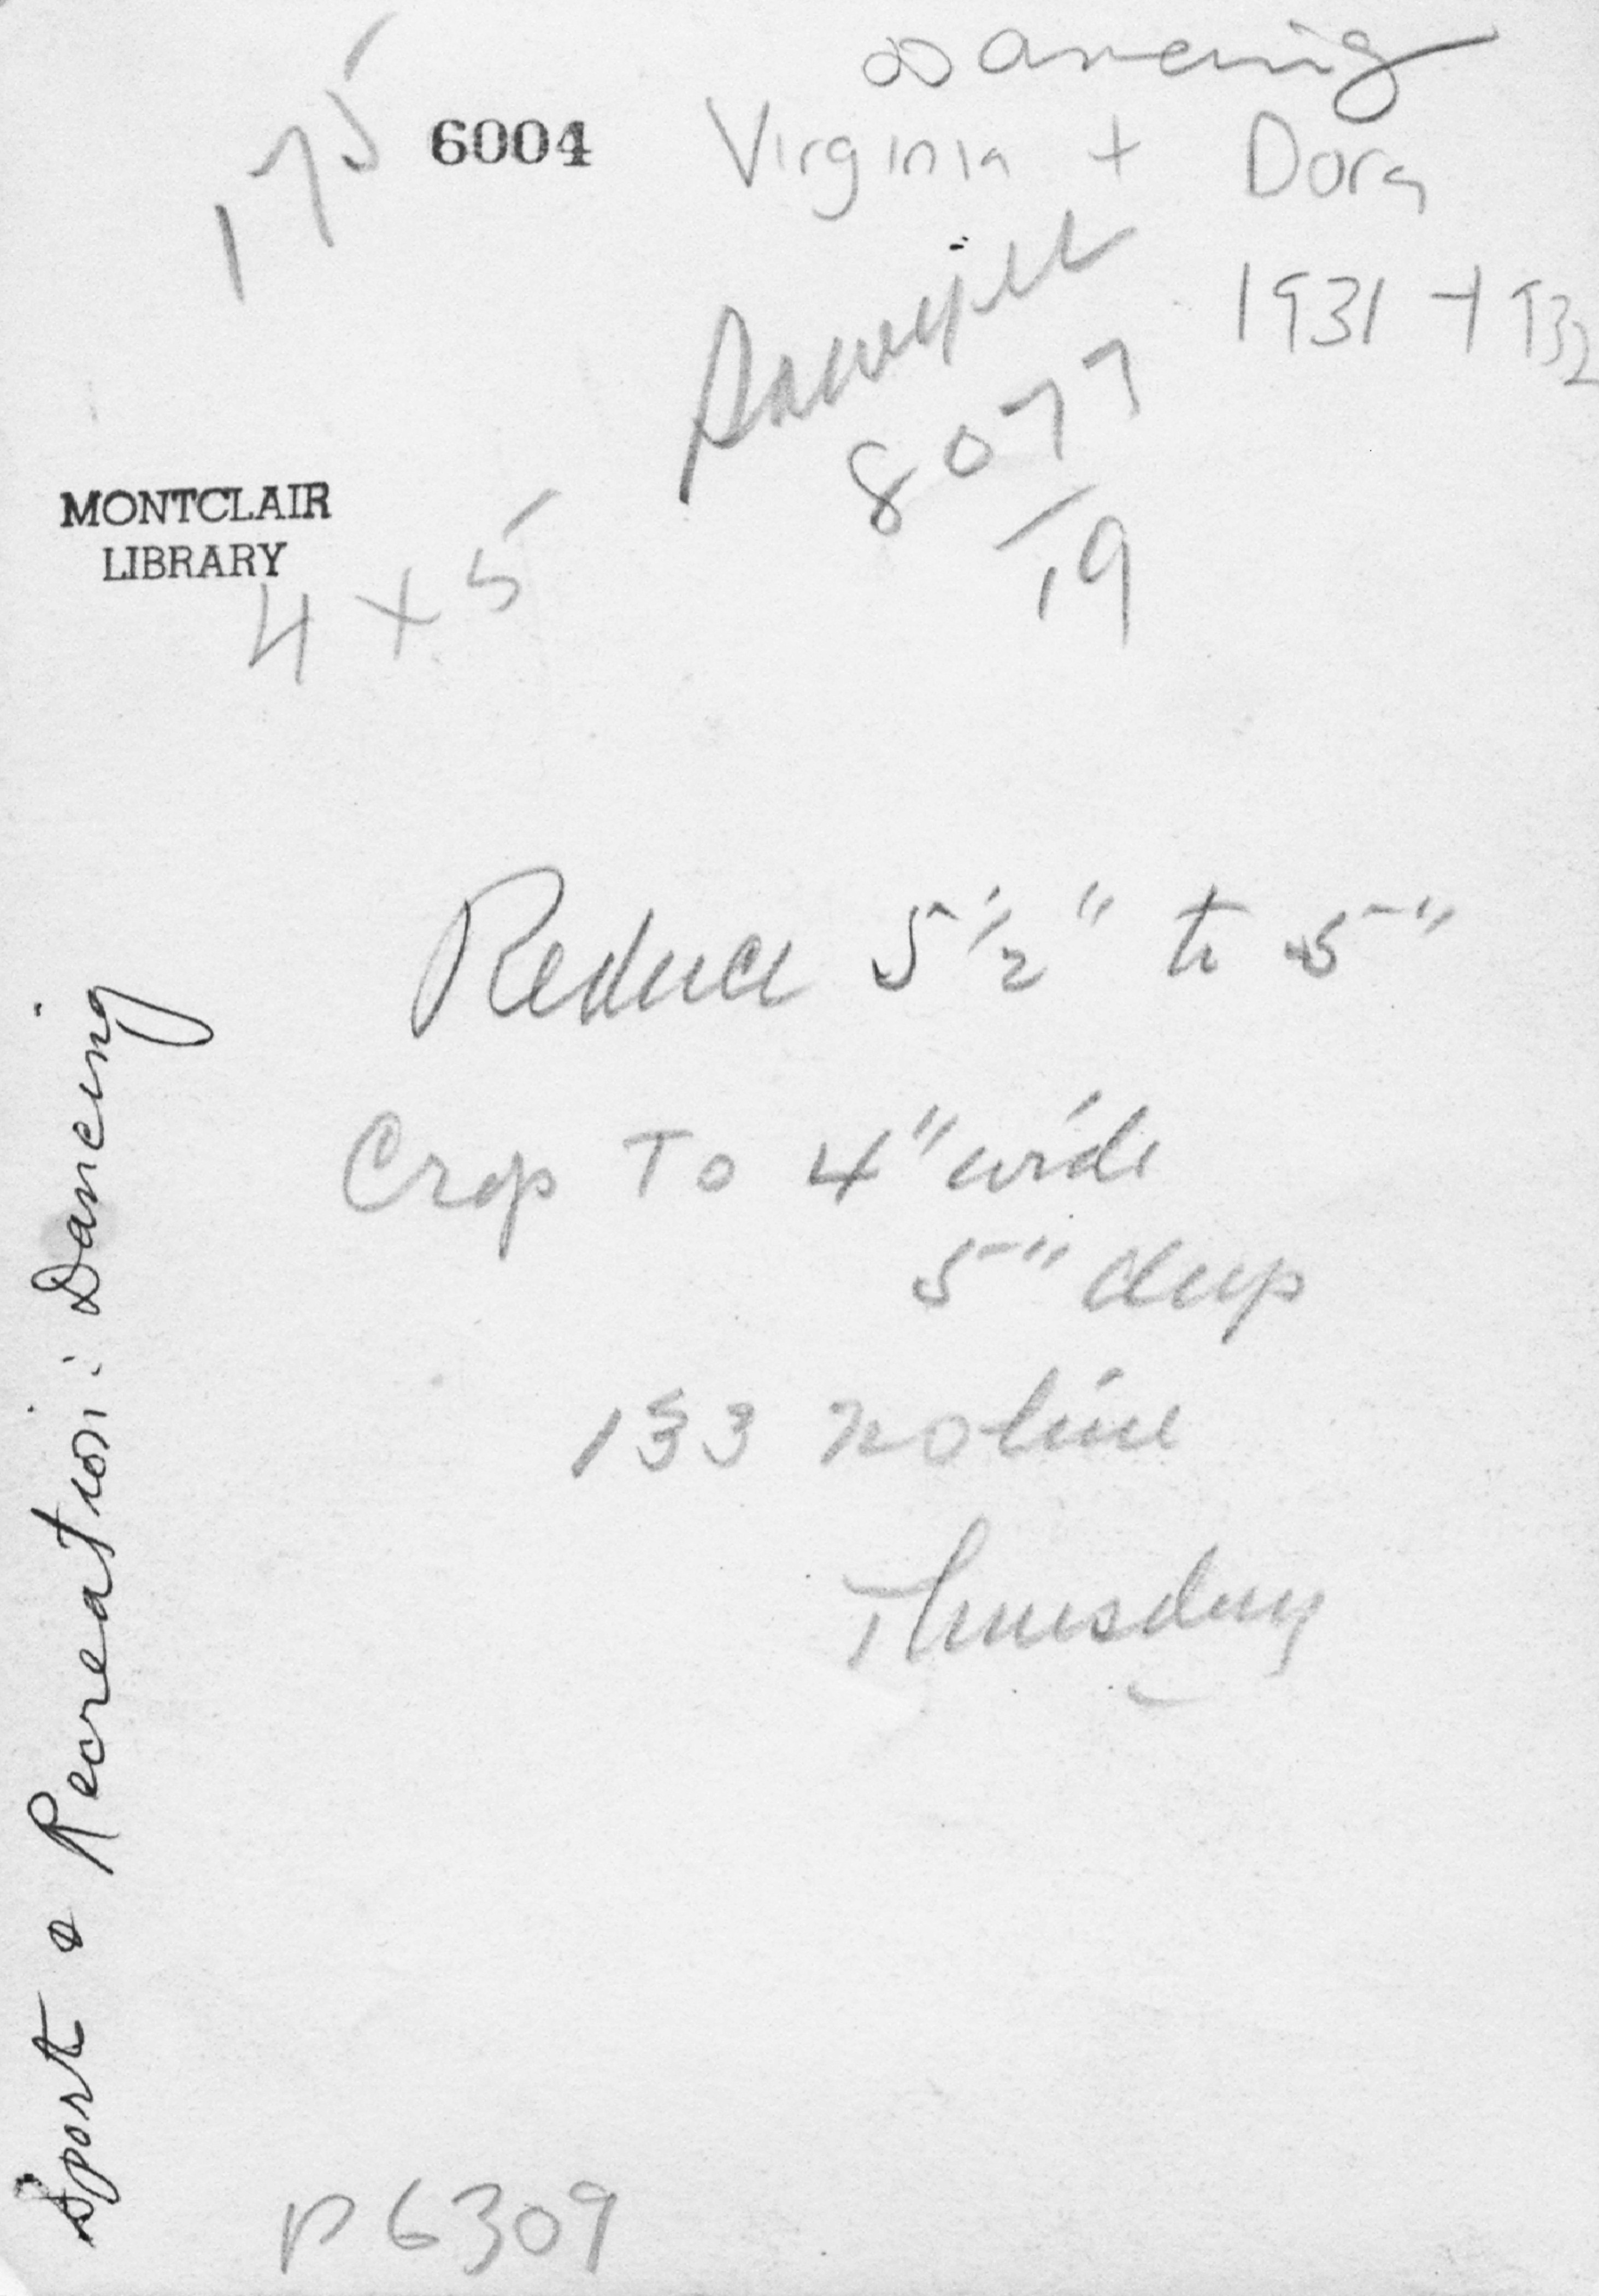 Dancing
175
6004
Virginia + Dora
1931 + 932
8077
19
MONTCLAIR
LIBRARY
4 x 5
Reduce 5 1/2" to 5"
Crop To 4" wide
5" deep
133 no line
Thursday
Sport & Recreation: Dancing
P6309